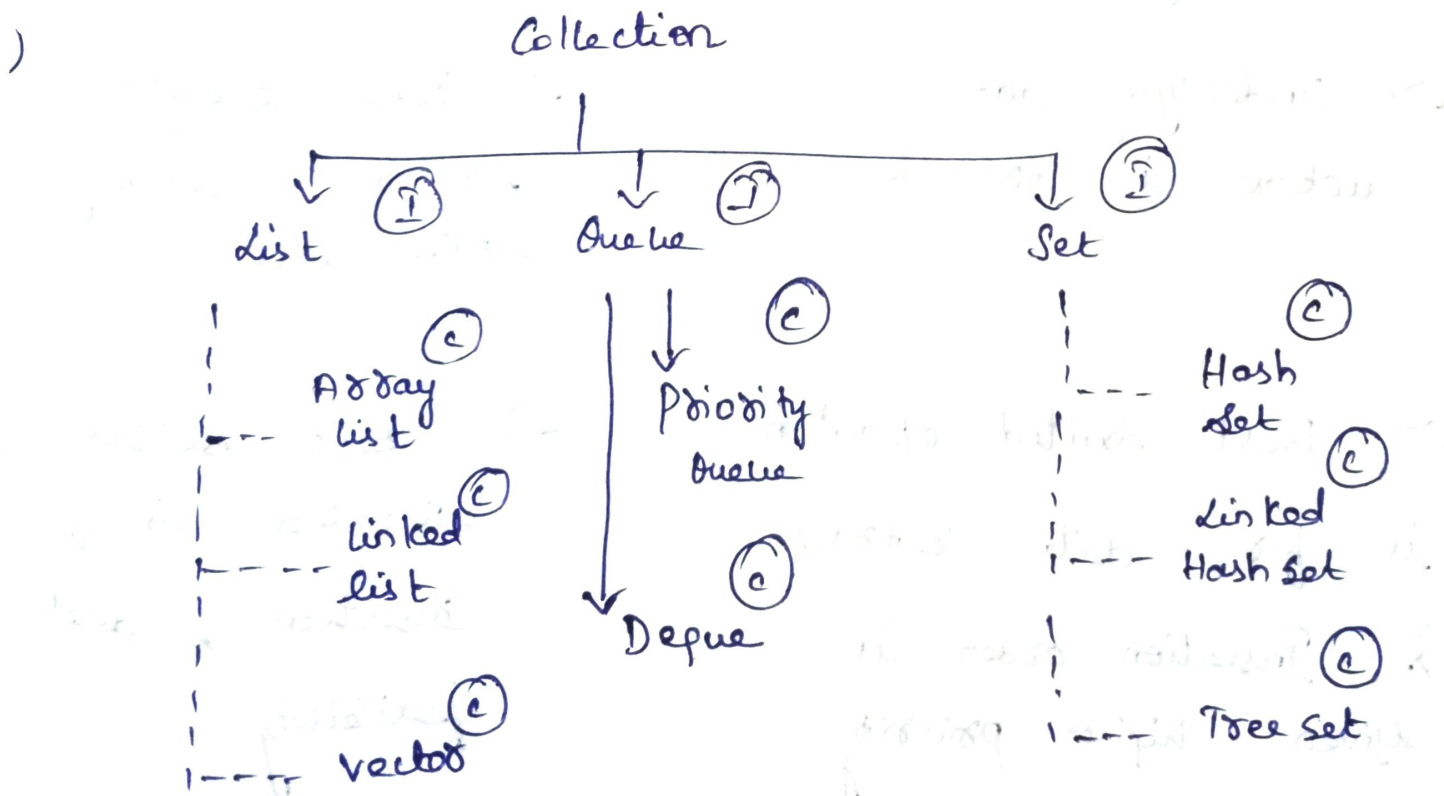 )
Collection
I
I
I
List
Queue
Set
C
Array
list
C
Linked
list
C
Vector
C
Priority
Queue
C
Deque
C
Hash
Set
C
Linked
Hash Set
C
Tree Set